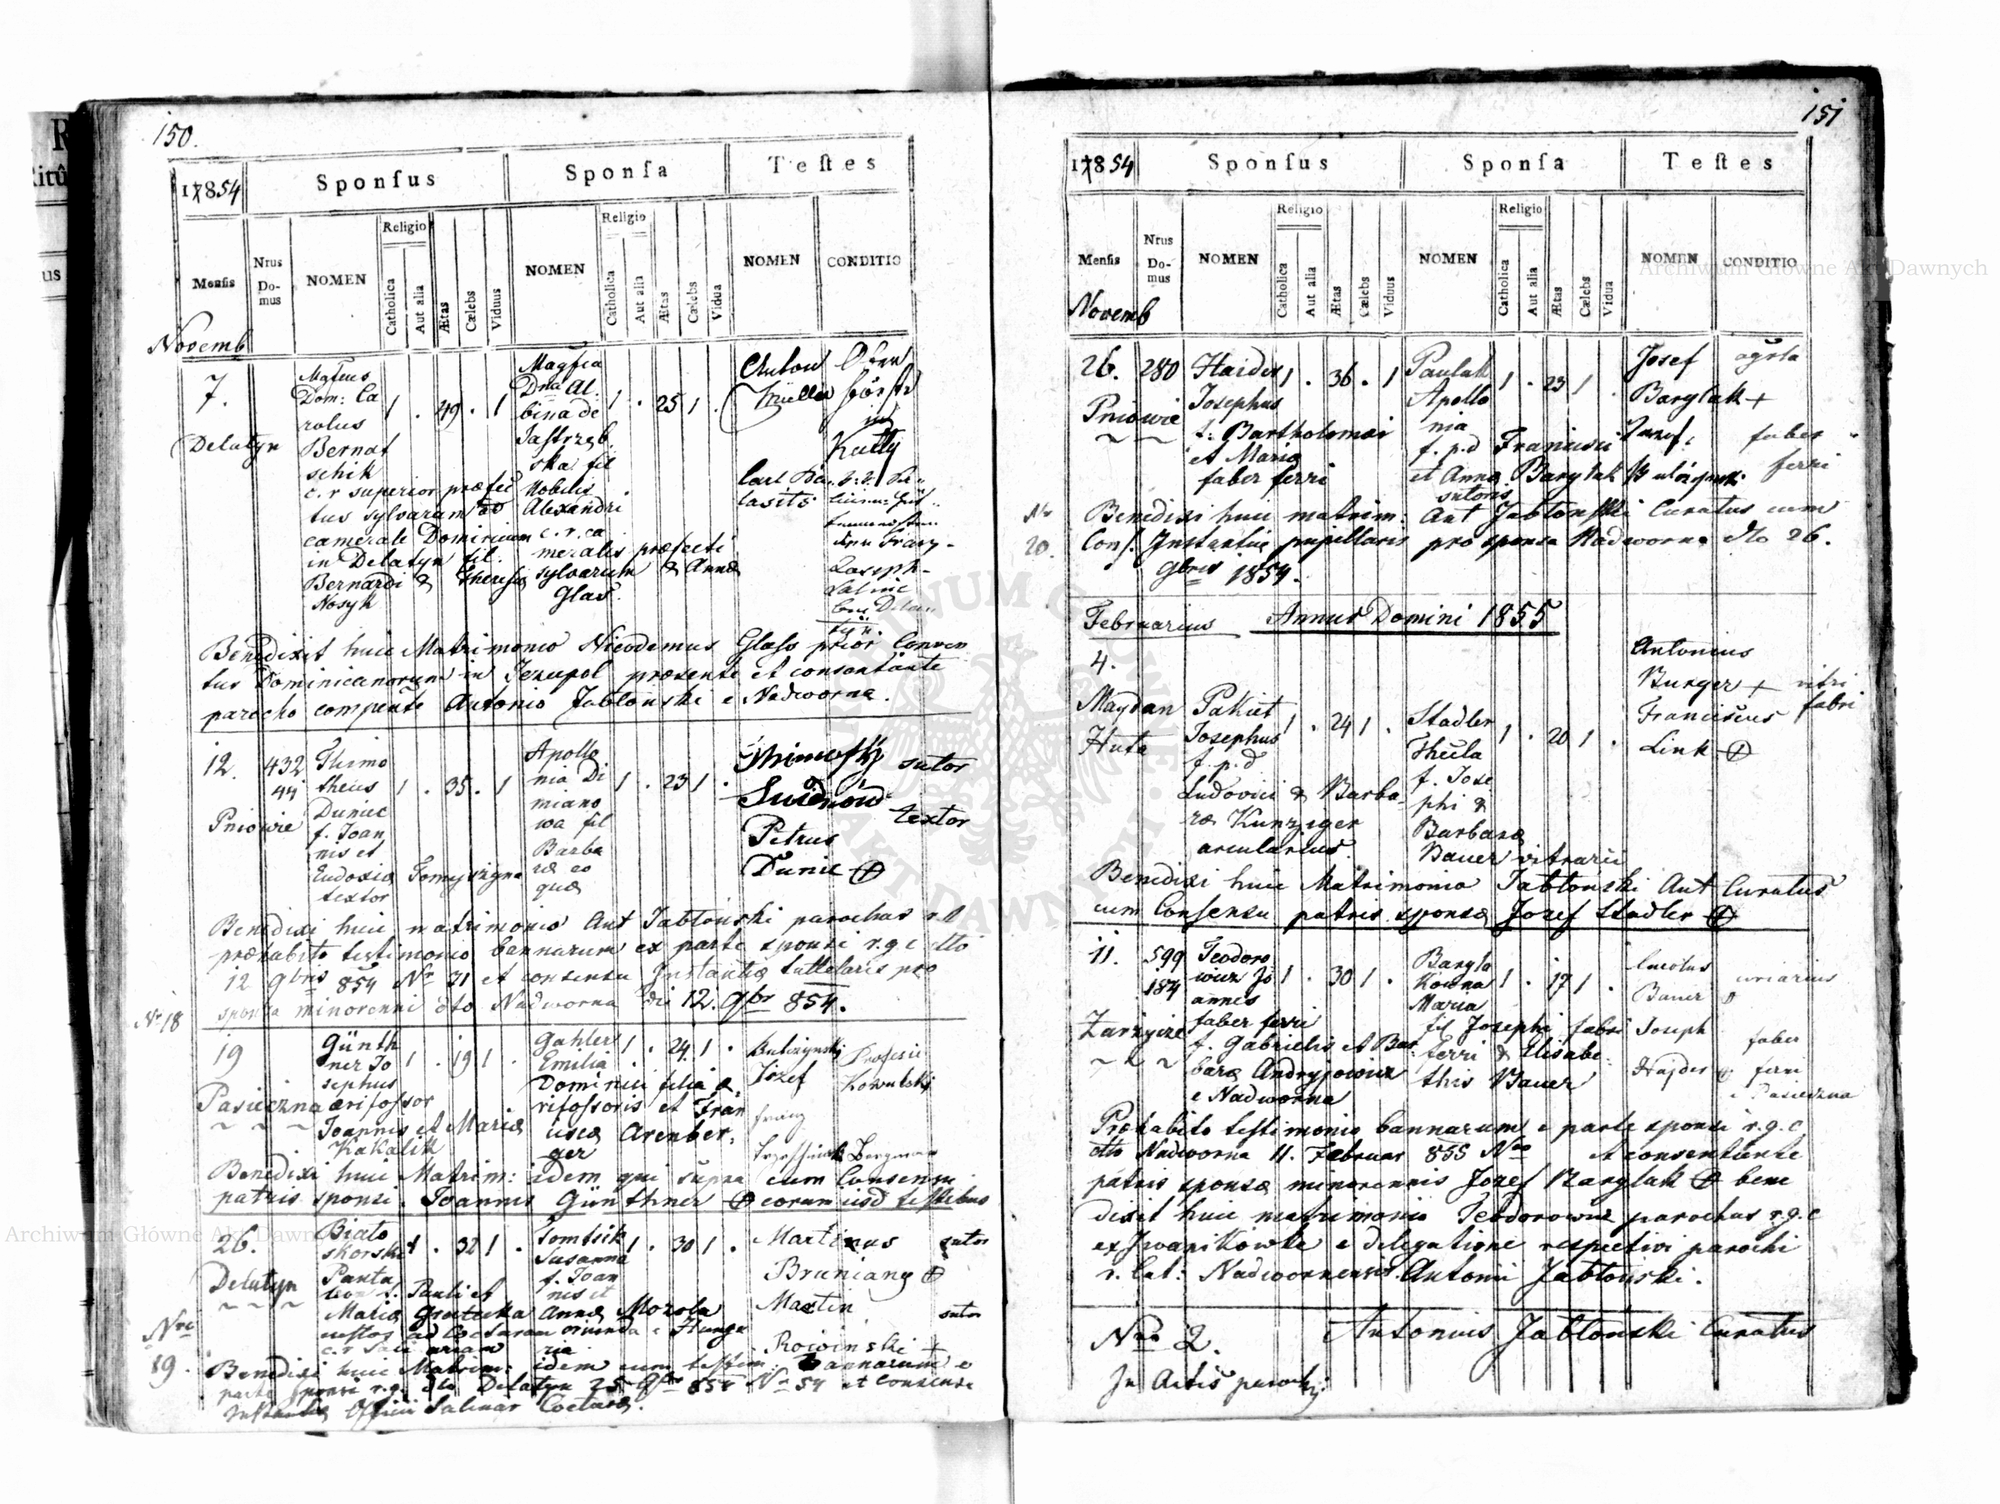 150.
17854
Sponsus
Sponsa
Testes
Mensis
Nrus Domus
NOMEN
Religio
Catholica
Aut alia
Ætas
Cælebs
Viduus
NOMEN
Religio
Catholica
Aut alia
Ætas
Cælebs
Vidua
NOMEN
CONDITIO
Novemb
7.
Delatyn
Dom: Ca
rolus
Bernat
schik
c.r superior præfec
tus sylvarum ad
camerale Dominium
in Delatyn fil.
Bernardi & Theresiæ
Nosyk
1 . 49 . 1
Magfca
Dna Al-
bina de
Jastrzęb
ska fil
Nobilis
Alexandri
c.r. ca
meralis præfecti
sylvarum & Annæ
Glas.
1 . 25 1 .
Anton
Müller
Ober
förster
in
Kutty
Carl
Benedixit huic Matrimonio Nicodemus Glass prior Conven
tus Dominicanorum in Jezupol præsente et consentante
parocho compente Antonio Jabłonski e Nadworna.
12.
Pniowie
432
44
Thimo
theus
Duniec
f. Joan
nis et
Eudoxiæ
textor
1 . 35 . 1
Apollo
nia Di
miano
wa fil
Barba
ræ eo
quæ
1 . 23 1 .
sutor
textor
Petrus
Dunic
Benedixi huic matrimonio Ant Jabłonski parochus r.l
præhabito testimonio bannarum ex parte sponsi r.g.c dtto
12 9bris 854 Nr 71 et consensu Instantiæ tuttelaris pro
sponsa minorenni dto Nadworna die 12. 9br 854.
Nr 18
19
Pasieczna
Günth
ner Jo
sephus
ærifossor
Joannis et Mariæ
Kakalik
1 . 19 1 .
Gahler
Emilia
Dominici filia æ
rifossoris et Fran
ciscæ Arenber,
ger
1 . 24 1 .
Józef
Kowalski
Bergman
Benedixi huic Matrim: idem qui supra cum Consensu
patris sponsi. Joannis Günthner eorum iisd testibus
26.
Delatyn
Nro
19.
Biało
skorski
Panta
leon f. Pauli et
Mariæ
1 . 32 1 .
Tomtsik
Susanna
f. Joan
nis et
Annæ Mozola
oriunda e Hunga
ria
1 . 30 1 .
Martinus
Bruniany
sutor
Martin
Rowinski +
sutor
Benedixi huic Matrim: idem cum testim. bannarum e
parte sponsi r.g. dto Delatyn 25 9br 854 Nr 54 et Consensu
Officii Salinar
151
17854
Sponsus
Sponsa
Testes
Mensis
Nrus Domus
NOMEN
Religio
Catholica
Aut alia
Ætas
Cælebs
Viduus
NOMEN
Religio
Catholica
Aut alia
Ætas
Cælebs
Vidua
NOMEN
CONDITIO
Novemb
26.
Pniowie
280
Haider
Josephus
f: Bartholomæi
et Mariæ
faber ferri
1 . 36 . 1
Paulak
Apollo
nia
f. p.d Francisci
et Annæ Barylak
sutoris
1 . 23 1
Josef
Barylak +
Jozef
faber
ferri
Nr
20.
Benedixi huic matrim: Ant Jabłonski Curatus cum
Cons. Instantiæ pupillaris pro sponsa Nadworna dto 26.
9bris 1854.
Februarius Annus Domini 1855
4.
Maydan
Huta
Pakiet
Josephus
f. p.d
Ludovici & Barba-
ræ Kunzyger
arcularius.
1 . 24 1 .
Stadler
Thecla
f. Jose
phi &
Barbaræ
Bauer vitrarii
1 . 20 1 .
Antonius
Burger +
Franciscus
Link
vitri
fabri
Benedixi huic Matrimonio Jabłonski Ant Curatus
cum Consensu patris sponsæ Jozef Stadler
11.
Zarzycze
599
184
Teodoro
wicz Jo
annes
faber ferri
f. Gabrielis et Bar
baræ Andryjowicz
e Nadworna
1 . 30 1 .
Baryla
kowna
Maria
fil Josephi fabri
ferri & Elisabe-
this Bauer
1 . 17 1 .
Bauer
Joseph
Hajder
faber
ferri
e Pasieczna
Præhabito testimonio bannarum e parte sponsi r.g.c
dto Nadworna 11. Februar 855 Nro et consentiente
patris sponsæ minorennis Jozef Barylak bene
dixit huic matrimonio Teodorowicz parochus r.g.c
ex Iwanikowka e delegatione respectivi parochi
r. lat: Nadwornensis. Antonii Jabłonski.
Nro 2. Antonius Jabłonski Curatus
In Actis paroch:
Archiwum Główne Akt Dawnych
Archiwum Główne Akt Dawnych
ARCHIWUM GŁÓWNE AKT DAWNYCH